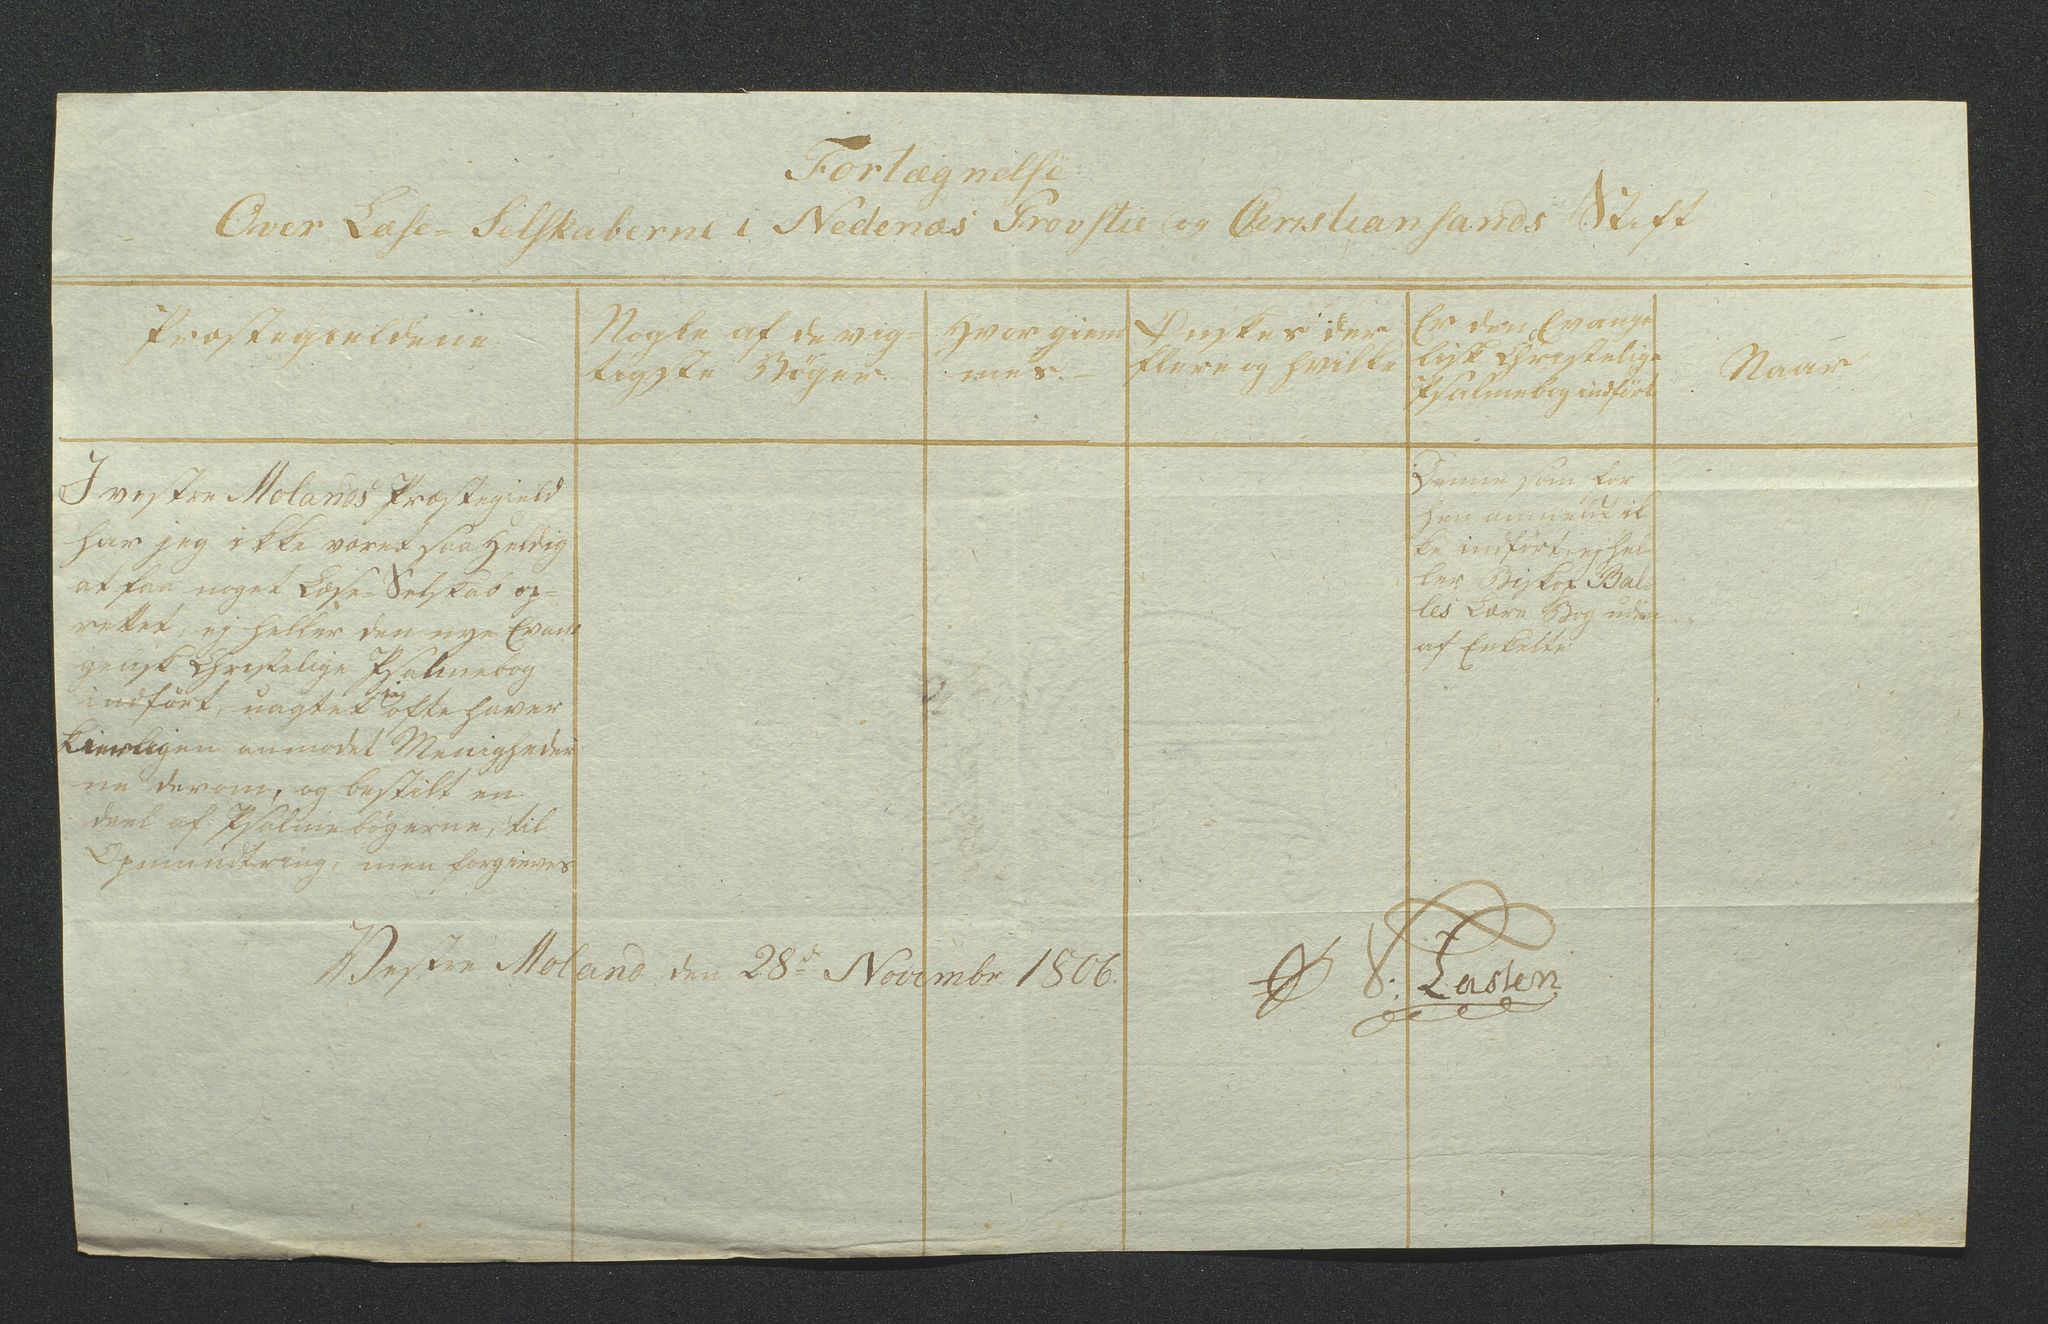 Fortægnelse
Over Læse-Selskaberne i Nedenæs Provstie og Christiansands Stift
Præstegieldene
Nogle af de vig-
tigste Bøger.
Hvor giem
mes.
Ønskes der
flere og hvilke
Er den Evange
lisk Christelige
Psalmebog indført
Naar
I vestre Molands Præstegield
har jeg ikke været saa heldig
at faa noget Læse-Selskab op-
rettet, ej heller den nye Evan
gelisk Christelige Psalmebog
indført, uagtet jeg ofte haver
kierligen anmodet Menigheder
ne derom, og bestilt en
deel af Psalmebøgerne, til
Opmundtring, men forgieves
Denne som for
hen anmeldt ik
ke indført, ej hel
ler Biskop Bal-
les Lære Bog uden
af Enkelte
Vestre Moland den 28d Novembr 1806.
S: Lasten